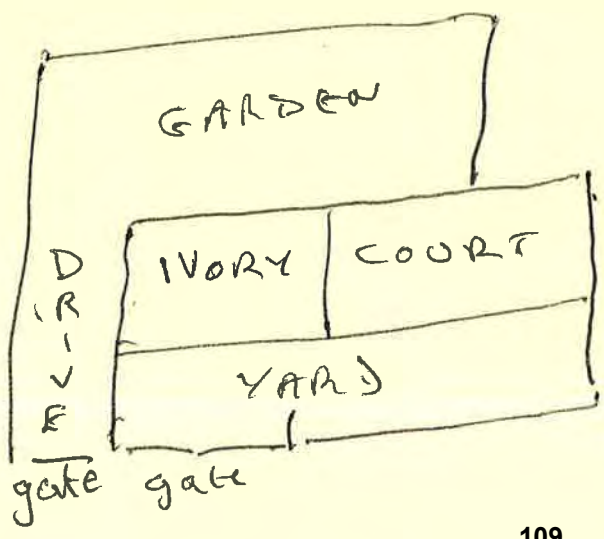 GARDEN
DRIVE
IVORY COURT
YARD
gate gate
109